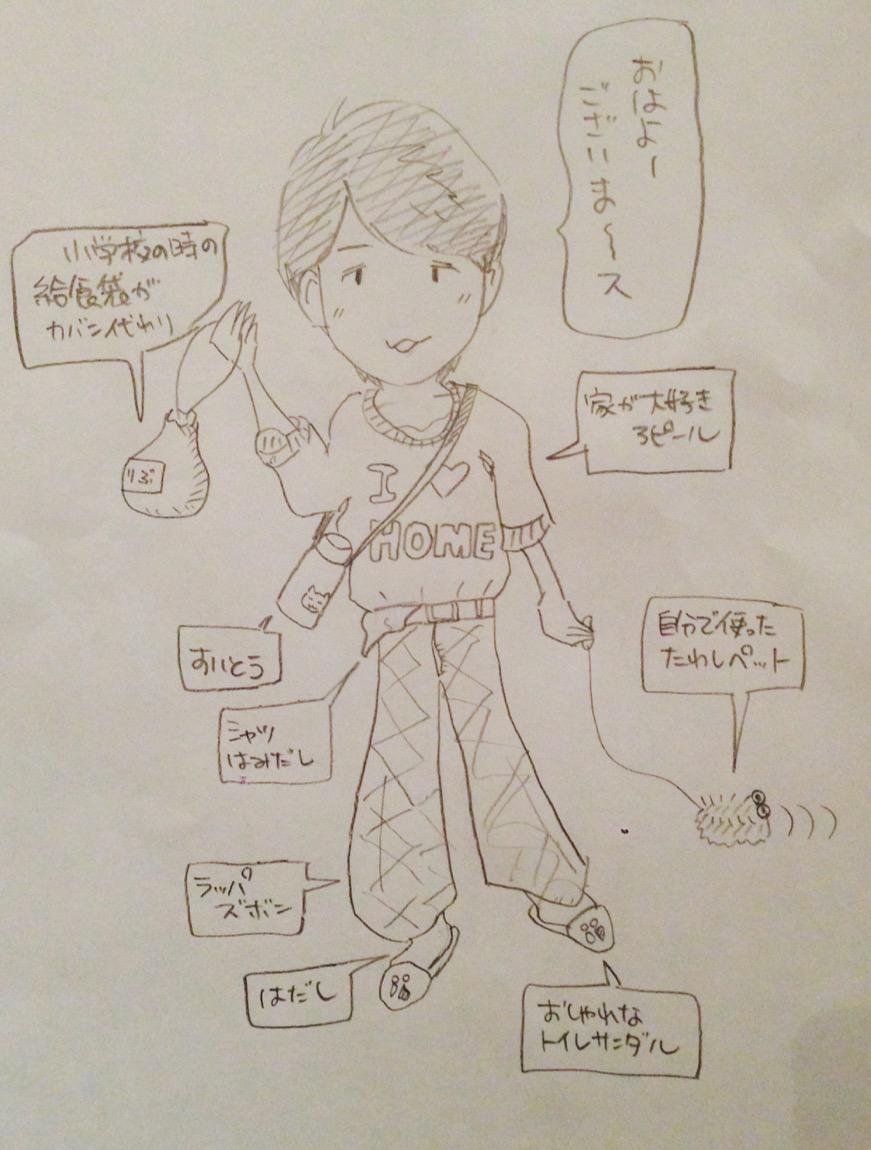 おはよー
ございま〜ス
小学校の時の
給食袋が
カバン代わり
りぶ
家が大好き
アピール
I ♡
HOME
すいとう
自分で使った
たわしペット
シャツ
はみだし
ラッパ
ズボン
はだし
おしゃれな
トイレサンダル